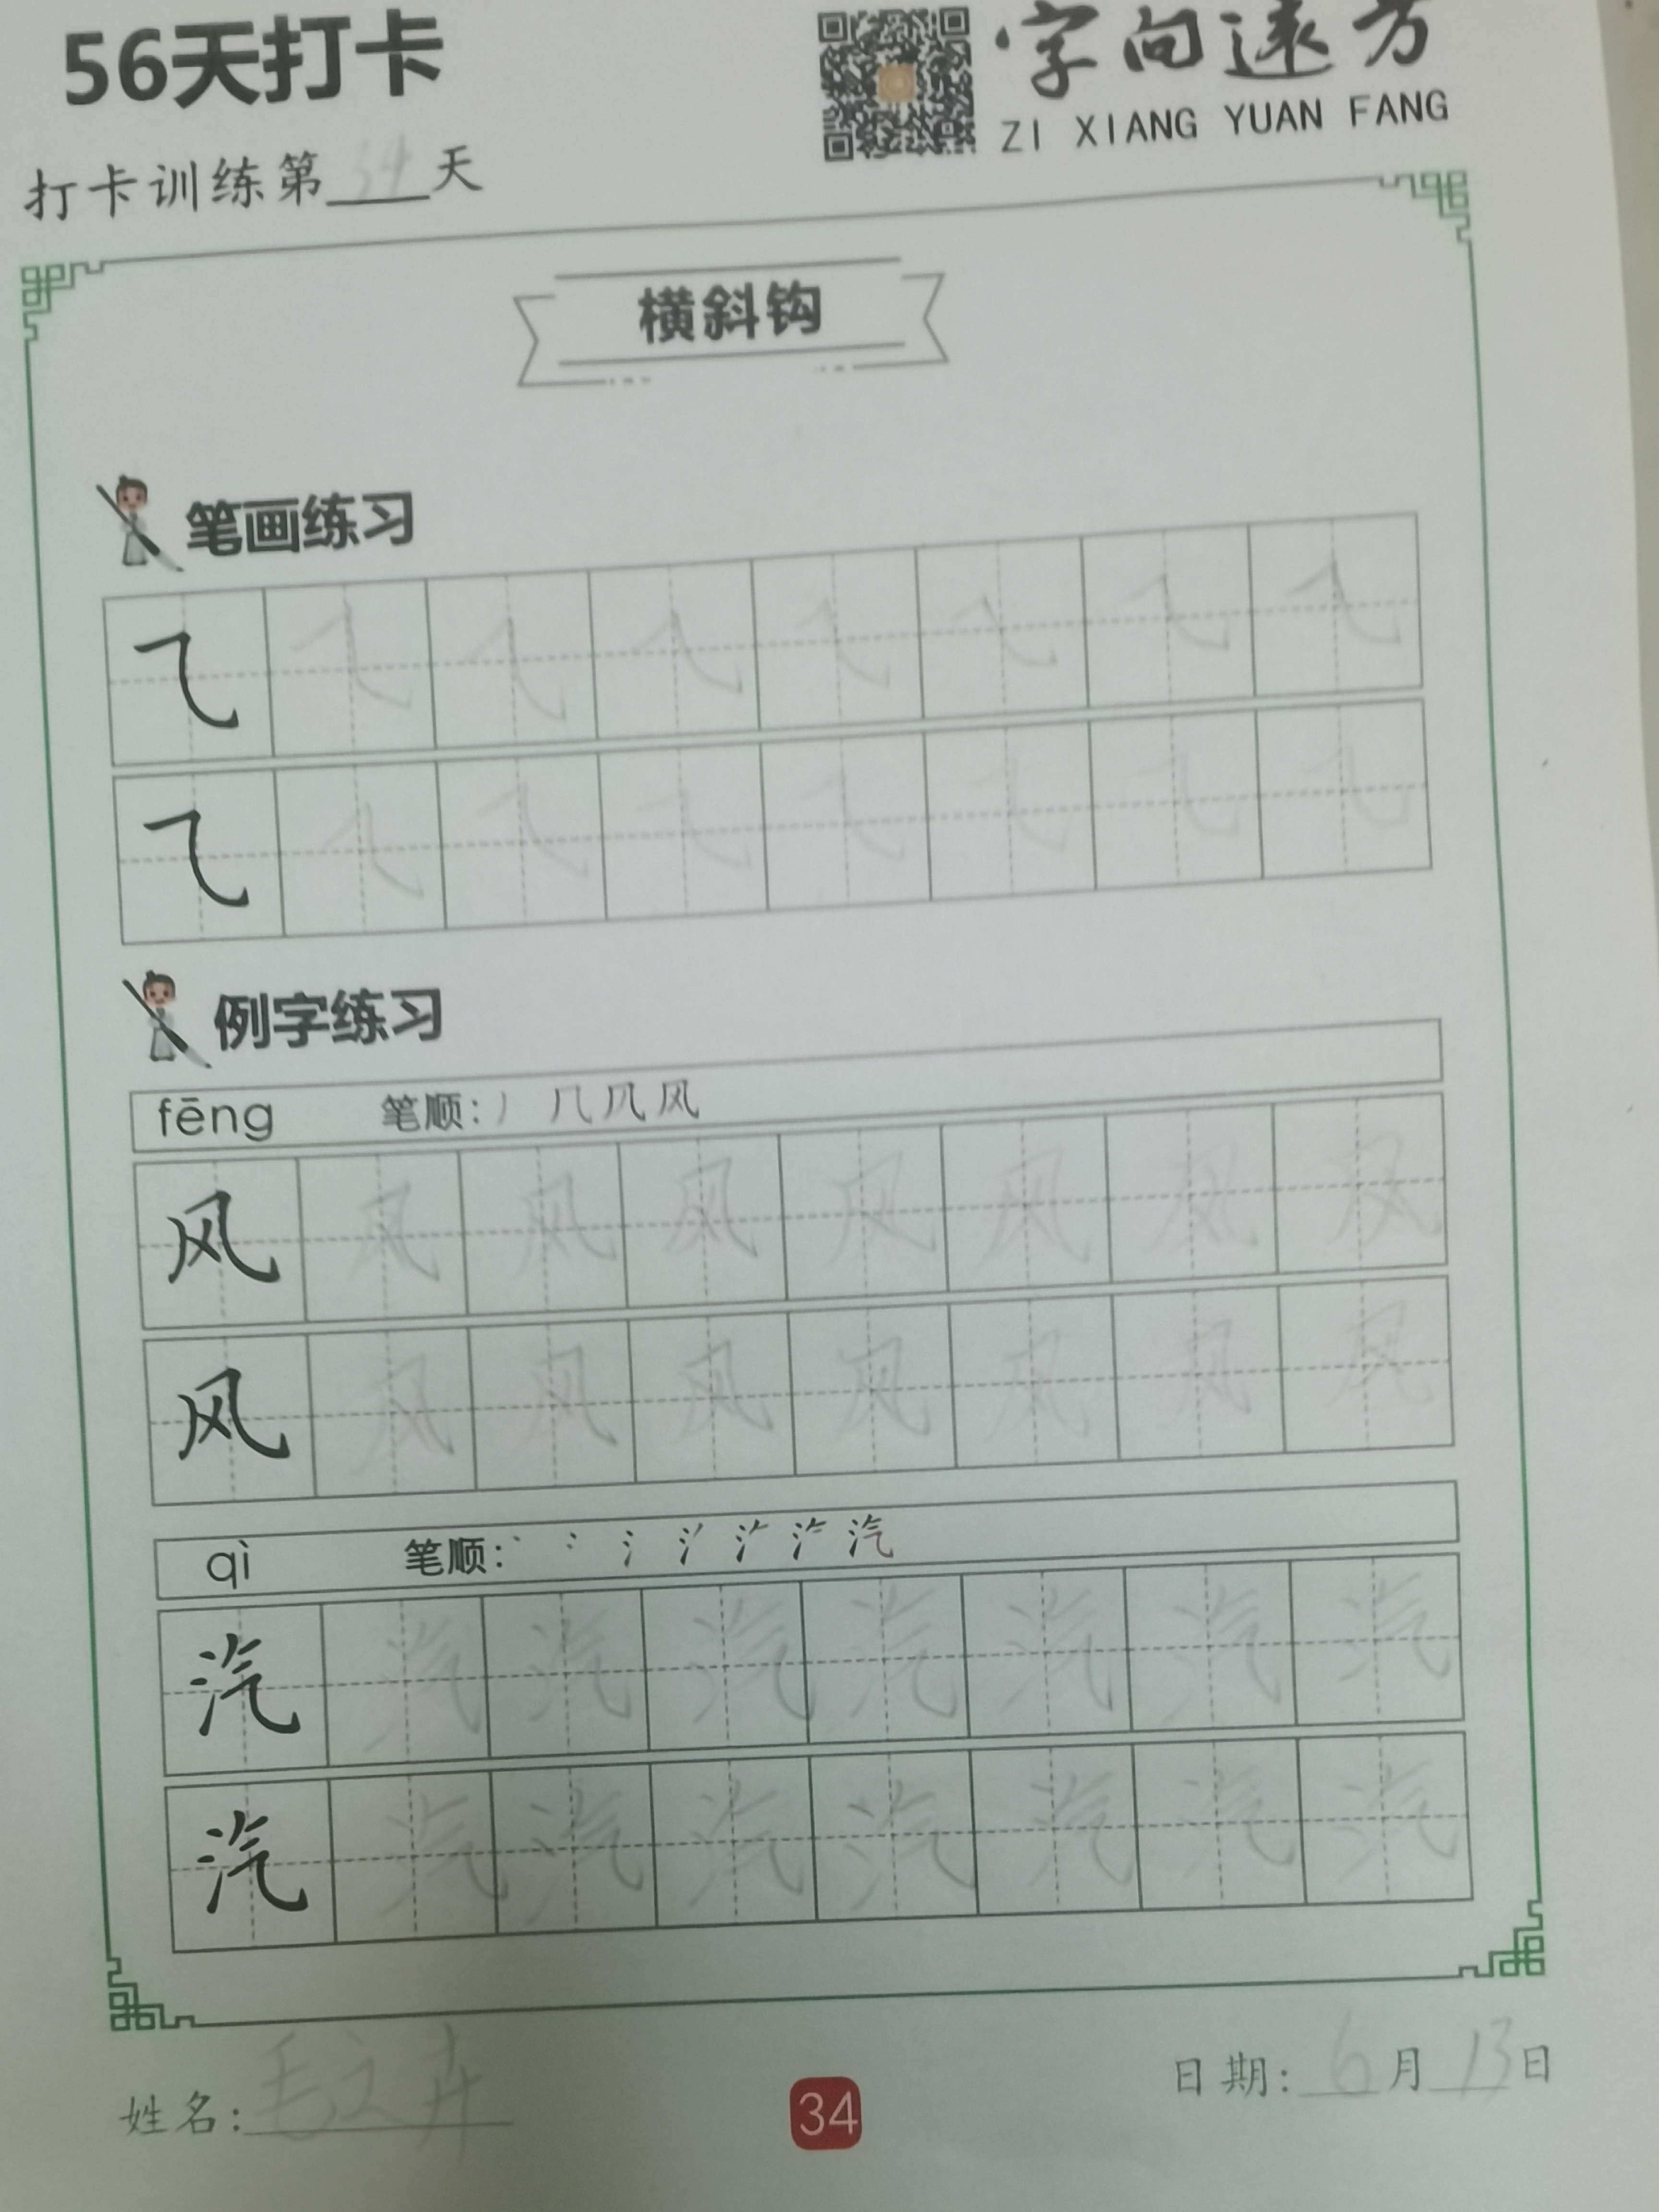 56天打卡
字向远方
ZI XIANG YUAN FANG
打卡训练第34天
横斜钩
笔画练习
㇈ ㇈ ㇈ ㇈ ㇈ ㇈ ㇈ ㇈
㇈ ㇈ ㇈ ㇈ ㇈ ㇈ ㇈ ㇈
例字练习
fēng 笔顺: 丿 几 风
风 风 风 风 风 风 风 风
风 风 风 风 风 风 风 风
qì 笔顺: 丶 冫 氵 汽
汽 汽 汽 汽 汽 汽 汽 汽
汽 汽 汽 汽 汽 汽 汽 汽
姓名: 毛文卉
34
日期: 6月13日